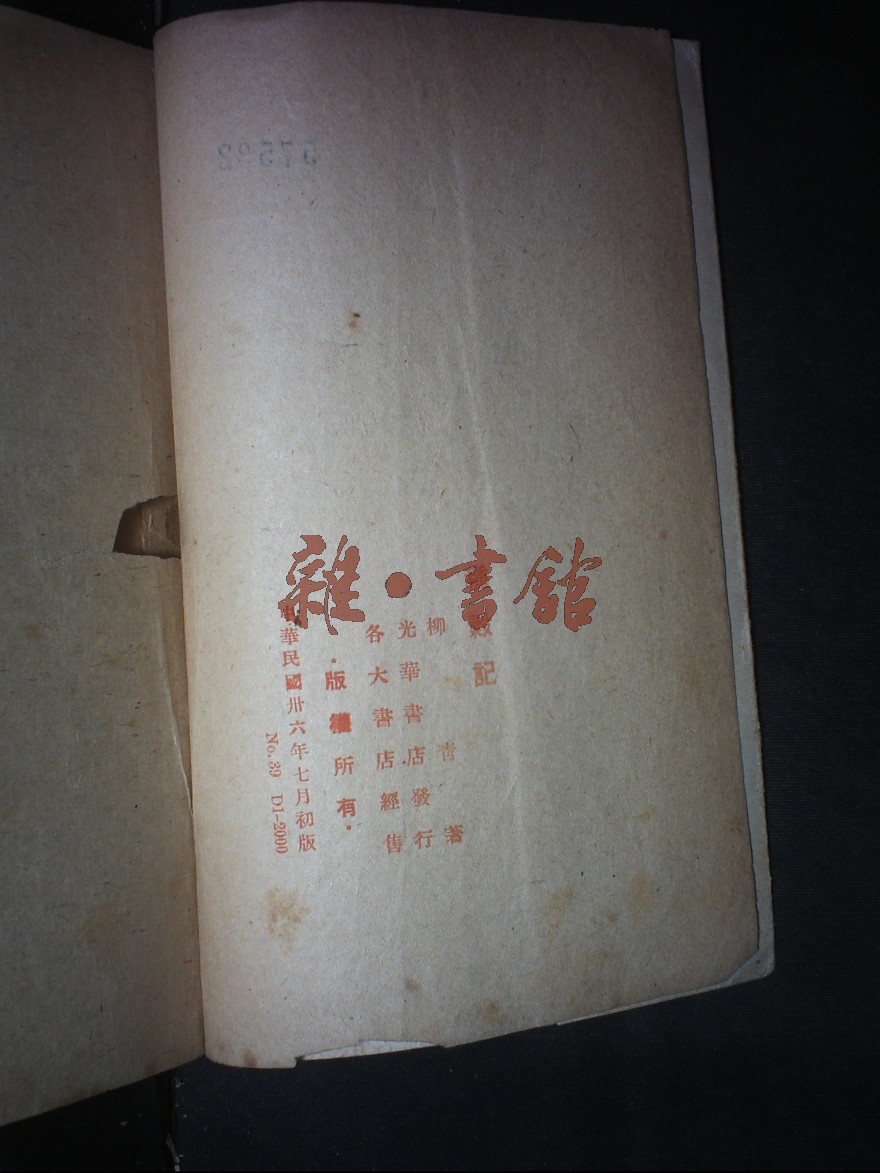 雜·書館
記
柳青著
光華書店發行
各大書店經售
·版權所有·
中華民國卅六年七月初版
No. 39 D1-2000